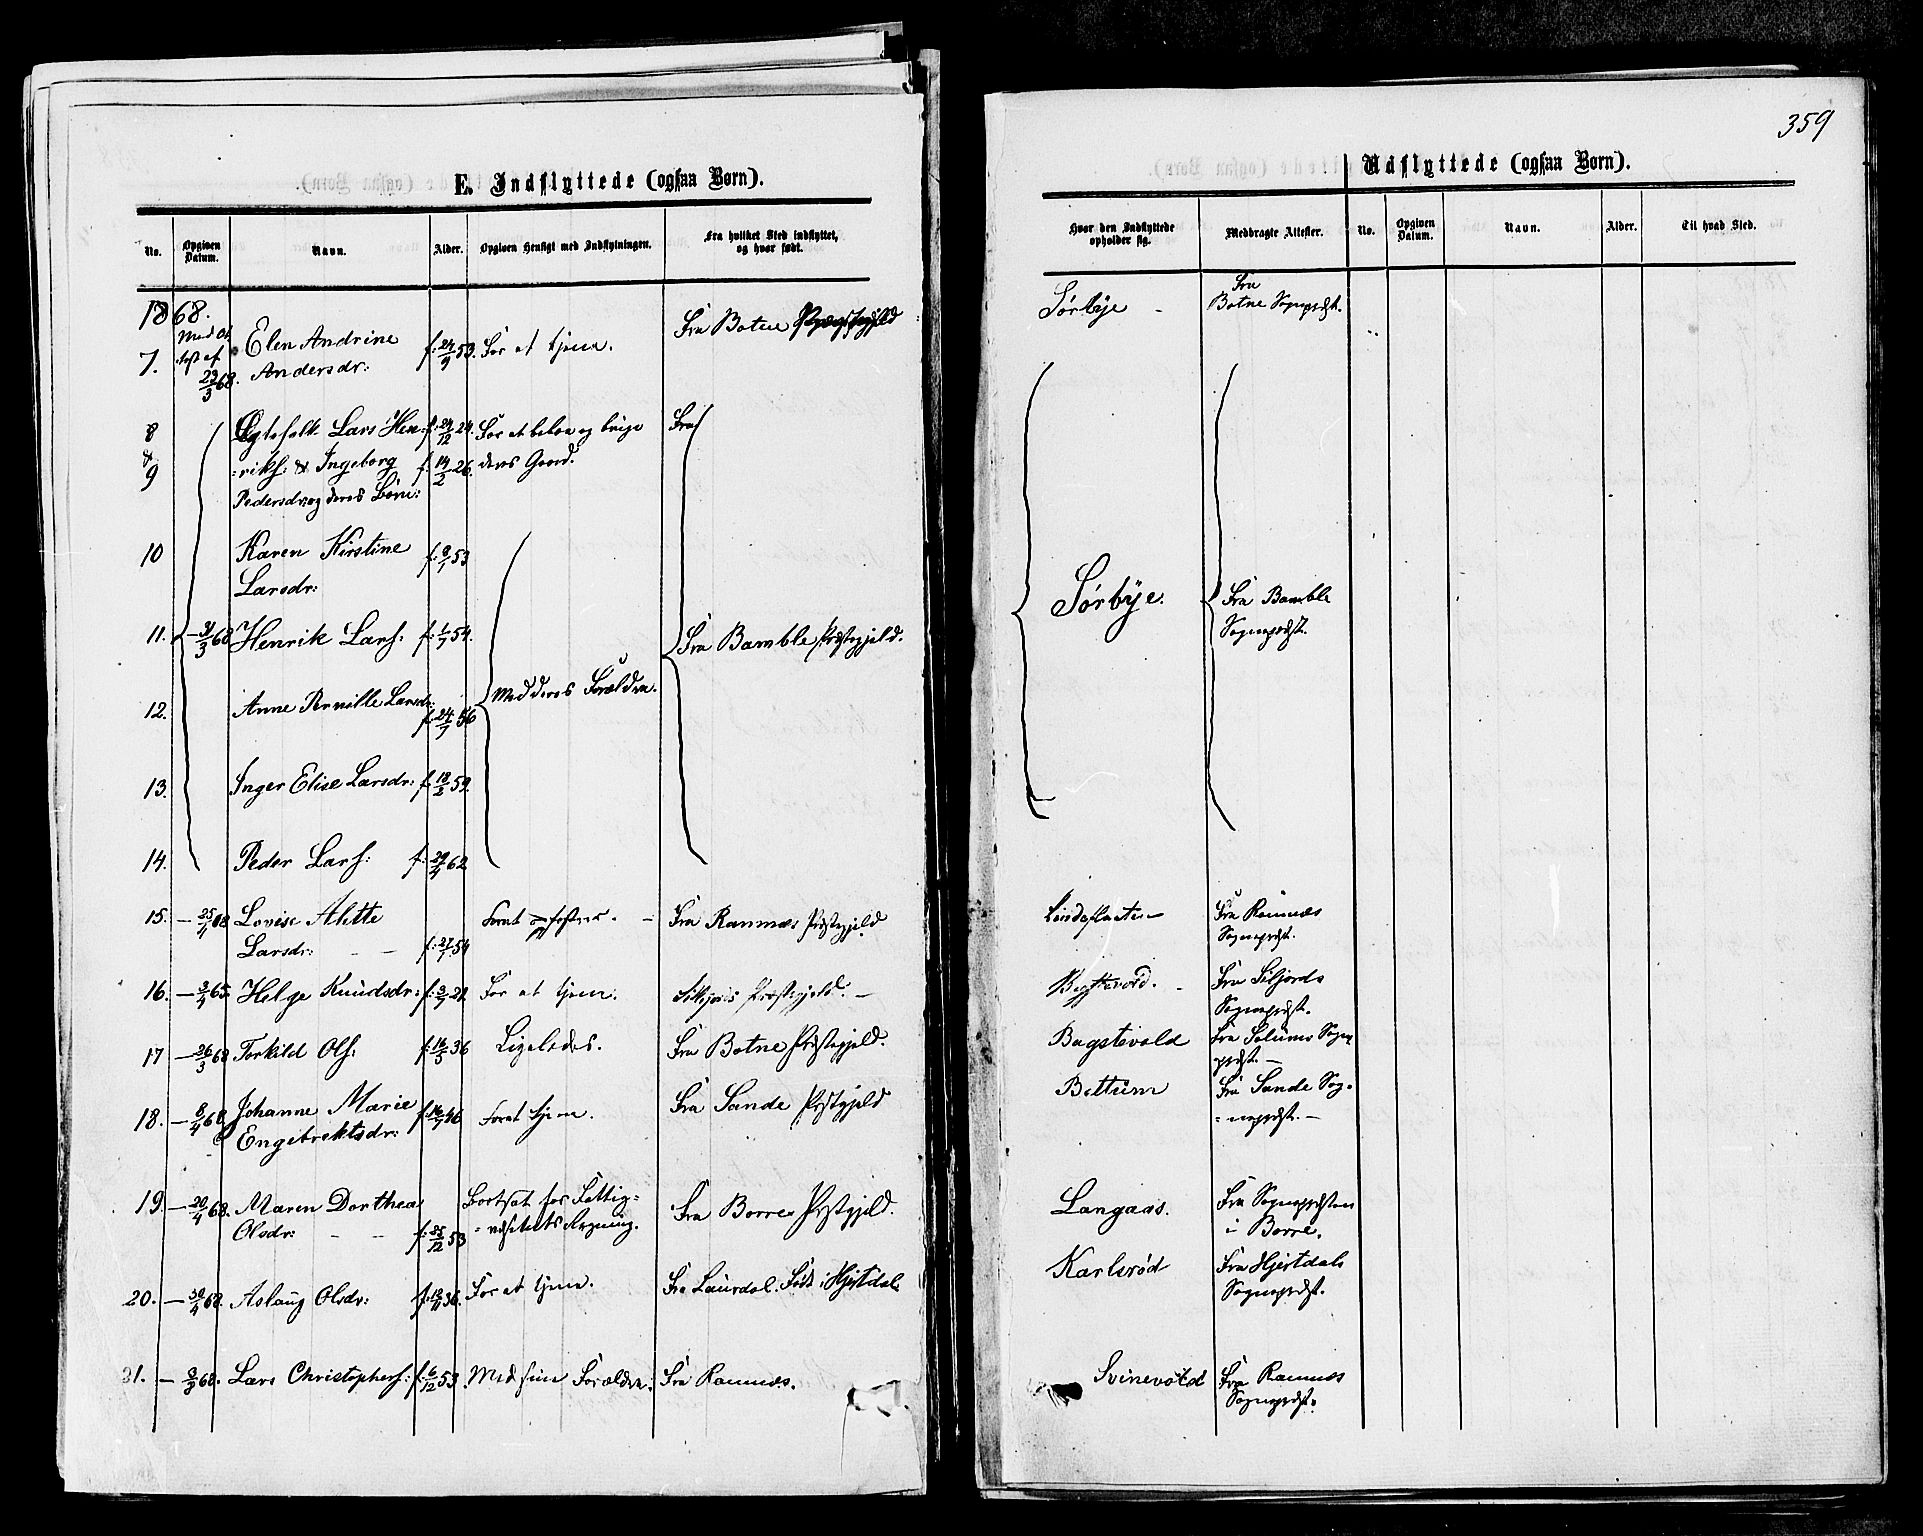 E. Indflyttede (ogsaa Børn).
No.
Opgiven Datum.
Navn.
Alder.
Opgiven Hensigt med Indflytningen.
Fra hvilket Sted indflyttet,
og hvor født.
1868.
7. Med At
test af
29/3 68.
Elen Andrine
Andersdr:
f. 24/9 53.
For at tjene.
Fra Botne
8
&
9
Egtefolk Lars Hen-
riks: & Ingeborg
Pedersdr: og deres Børn:
f. 24/12 24.
f. 14/2 26.
For at beboe og bruge
deres Gaard.
Fra
10
Karen Kirstine
Larsdr:
f. 9/1 53
11. 31/3 68
Henrik Lars:
f. 1/7 54.
Med deres Forældre.
Fra Bamble Præstegjeld.
12.
Anne Pernille Larsdr:
f. 24/7 56
13.
Inger Elise Larsdr:
f. 18/2 59.
14.
Peder Lars:
f. 29/4 62
15. — 25/4 68
Lovise Alette
Larsdr: — —
f. 27/7 54
Fra Ramnæs Præstegjeld
16. — 3/4 65
Helge Knudsdr:
For at tjene.
Præstegjeld. —
17 — 26/3 68
Torkild Ols:
f. 16/5 36
Ligeledes.
Fra Botne Præstegjeld.
18. — 8/4 68
Johanne Marie
Engebrektsdr:
f. 16/7 46
For at tjene.
Fra Sande Præstegjeld
19. — 20/4 68.
Maren Dorthea
Olsdr: — —
f. 25/12 53
Bortsat for Fattig=
=væsenets Regning.
Fra Borre Præstegjeld.
20. — 30/4 68.
Aslaug Olsdr:
f. 18/11 36.
For at tjene.
Fra Laurdal. Født i Hjertdal
21. — 3/3 68.
Lars Christophers:
f. 6/12 53.
Med sine Forældre.
Fra Ramnæs.
359
Udflyttede (ogsaa Børn).
Hvor den Indflyttede
opholder sig.
Medbragte Attester.
No.
Opgiven
Datum.
Navn.
Alder.
Til hvad Sted.
Sørbye
Fra
Botne Sognepræst.
Sørbye.
Fra Bamble
Sognepræst.
Fra Ramnæs
Sognepræst.
Fra Siljords
Sognepræst.
Bagstevold
Fra Solums Sogne
præst. —
Bettum
Fra Sande Sog-
=nepræst. —
Langaas.
Fra Sognepræsten
i Borre.
Karlsrød
Fra Hjertdals
Sognepræst.
Svinevold
Fra Ramnæs
Sognepræst.